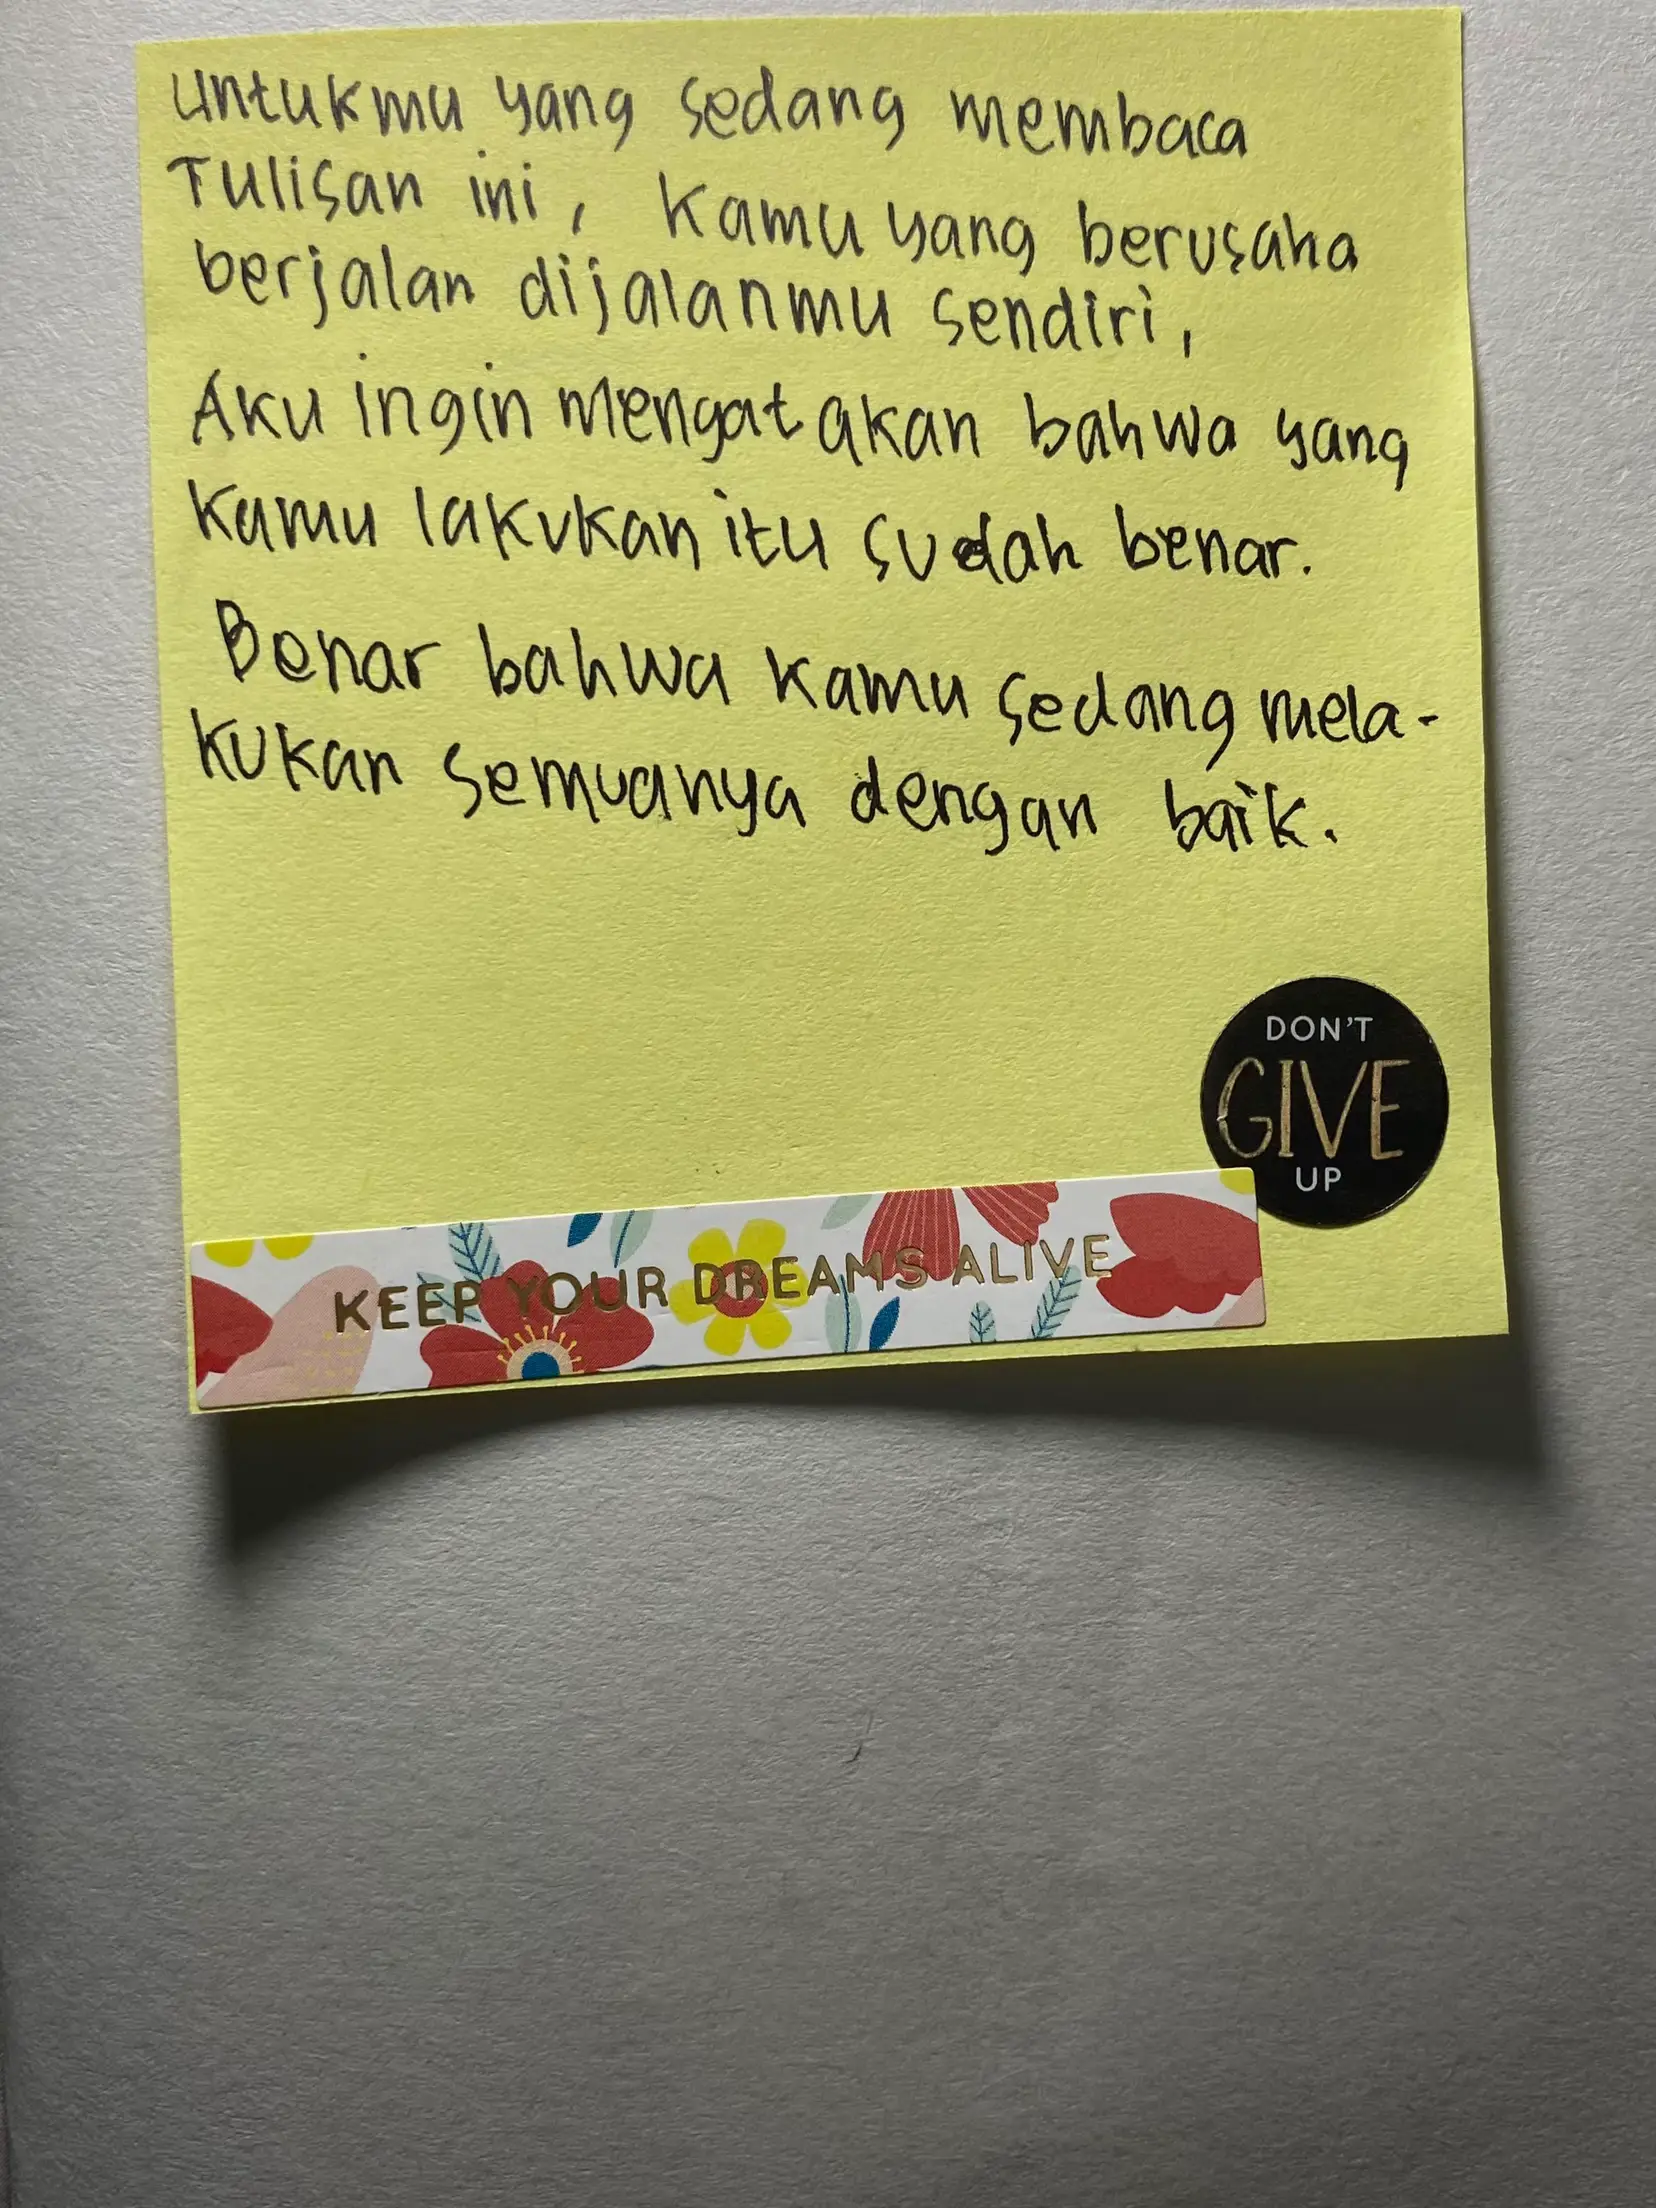 Untukmu yang sedang membaca
Tulisan ini, Kamu yang berusaha
berjalan dijalanmu sendiri,
Aku ingin mengatakan bahwa yang
Kamu lakukan itu sudah benar.
Benar bahwa kamu sedang mela-
kukan semuanya dengan baik.
DON'T
GIVE
UP
KEEP YOUR DREAMS ALIVE